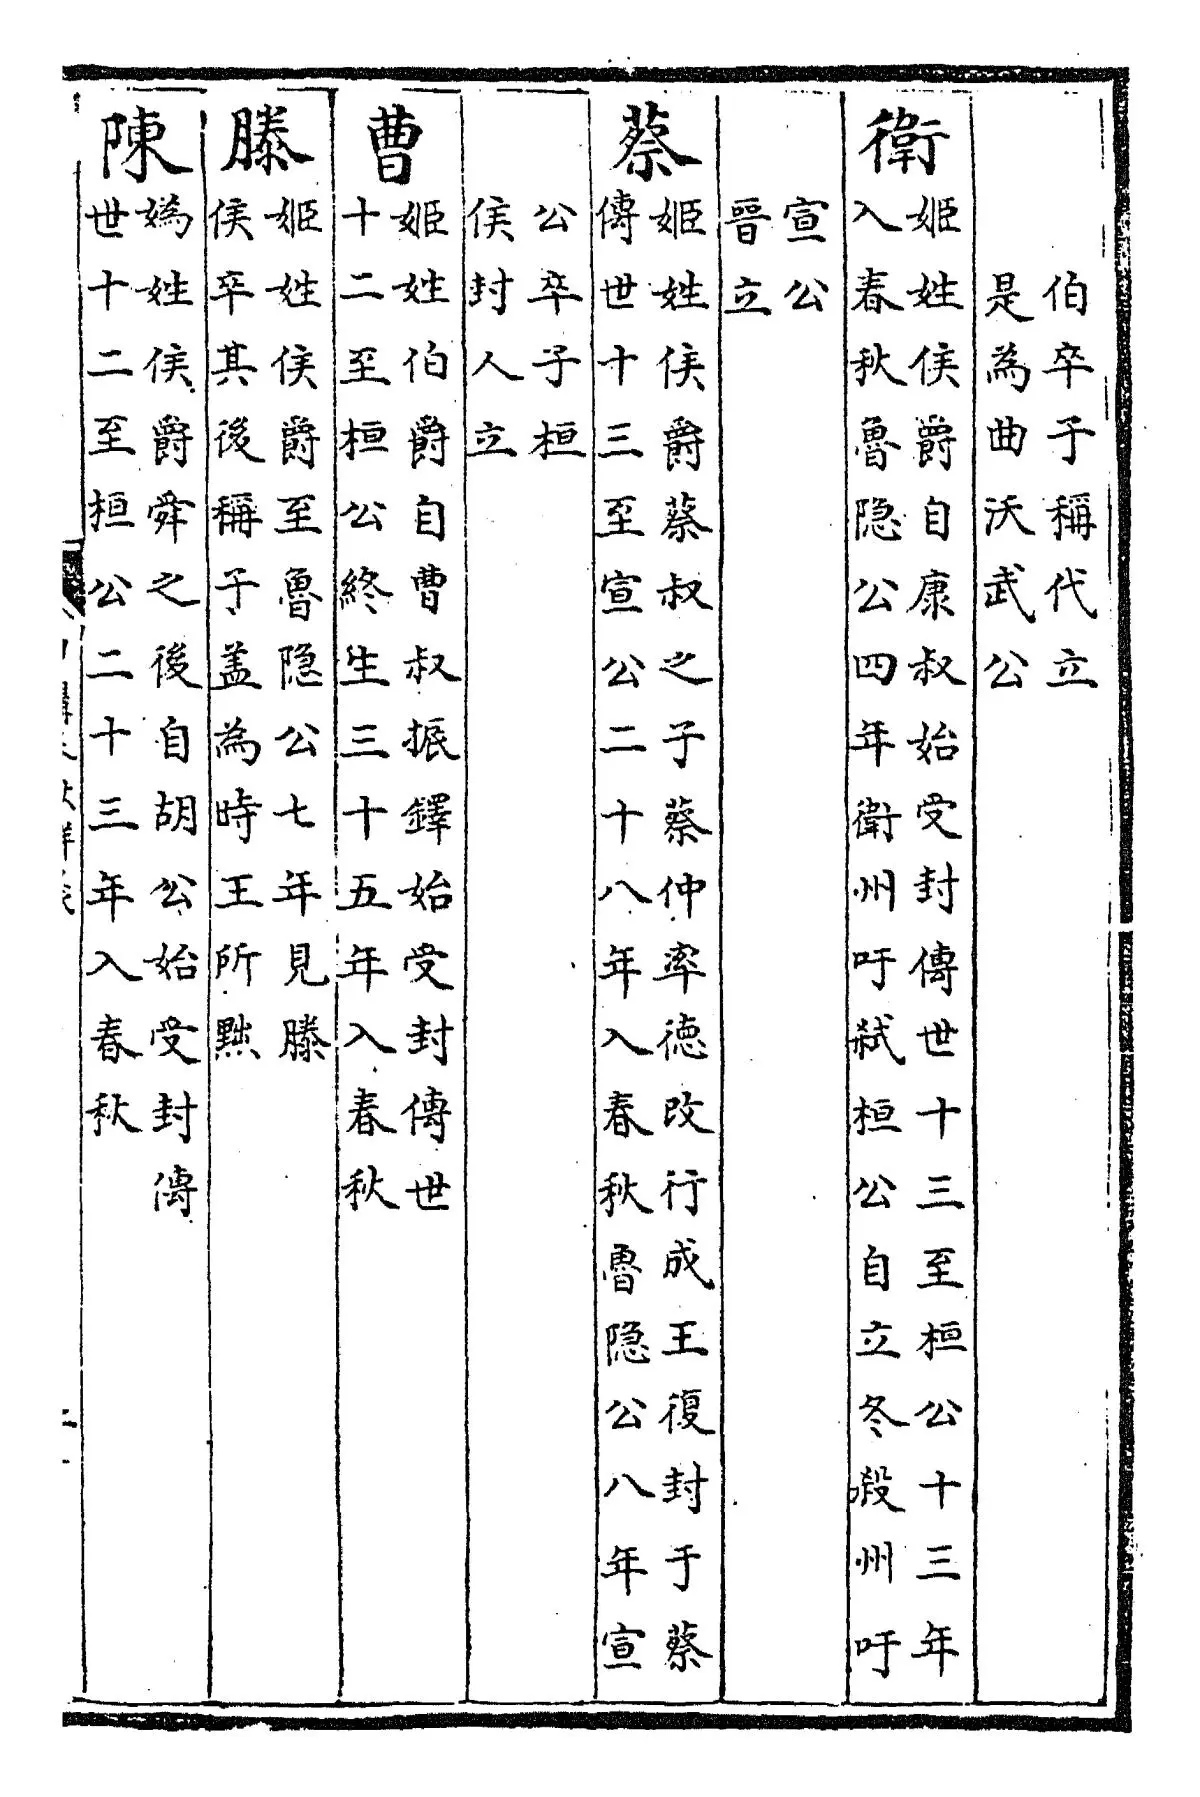 伯卒子稱代立
是為曲沃武公
衛
姬姓侯爵自康叔始受封傳世十三至桓公十三年
入春秋魯隐公四年衛州吁弑桓公自立冬殺州吁
宣公
晉立
蔡
姬姓侯爵蔡叔之子蔡仲率德改行成王復封于蔡
傳世十三至宣公二十八年入春秋魯隐公八年宣
公卒子桓
侯封人立
曹
姬姓伯爵自曹叔振鐸始受封傳世
十二至桓公終生三十五年入春秋
滕
姬姓侯爵至魯隐公七年見滕
侯卒其後稱子盖為時王所黜
陳
媯姓侯爵舜之後自胡公始受封傳
世十二至桓公二十三年入春秋